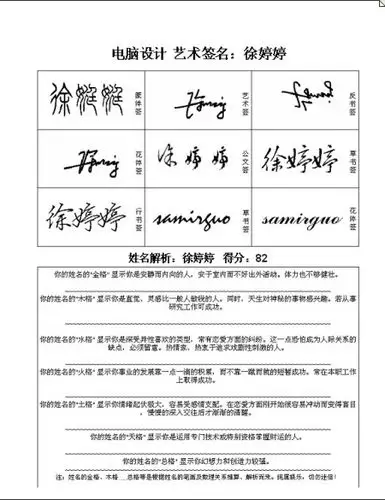 电脑设计 艺术签名：徐婷婷
徐婷婷 篆体签
艺术签
反书签
花体签
徐婷婷 公文签
徐婷婷 草书签
徐婷婷 行书签
samirguo 草书签
samirguo 花体签
姓名解析：徐婷婷 得分：82
你的姓名的"金格"显示你是安静而内向的人，安于室内而不好出外活动。体力也不够健壮。
你的姓名的"木格"显示你是直觉、灵感比一般人敏锐的人。同时，天生对神秘的事物感兴趣。若从事
研究工作可成功。
你的姓名的"水格"显示你是深受异性喜欢的类型，常有恋爱方面的纠纷。这一点恐怕成为人际关系的
缺点，必须留意。热情家、热衷于追求戏剧性刺激的人。
你的姓名的"火格"显示你事业的发展靠一点一滴的积累，而不靠一蹴而就的短暂成功。常在本职工作
上取得成功。
你的姓名的"土格"显示你情绪起伏极大，容易受感情支配。在恋爱方面刚开始很容易冲动而变得盲目
，慢慢的深入交往后才渐渐的清醒。
你的姓名的"天格"显示你是运用专门技术或特别资格掌握财运的人。
你的姓名的"总格"显示你幻想力和创造力较强。
注：姓名的金格、木格……总格等是根据姓名的笔画及数理关系推算、解析而来。纯属娱乐，切勿迷信！